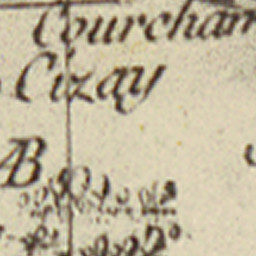 Courcham
Cizay
AB